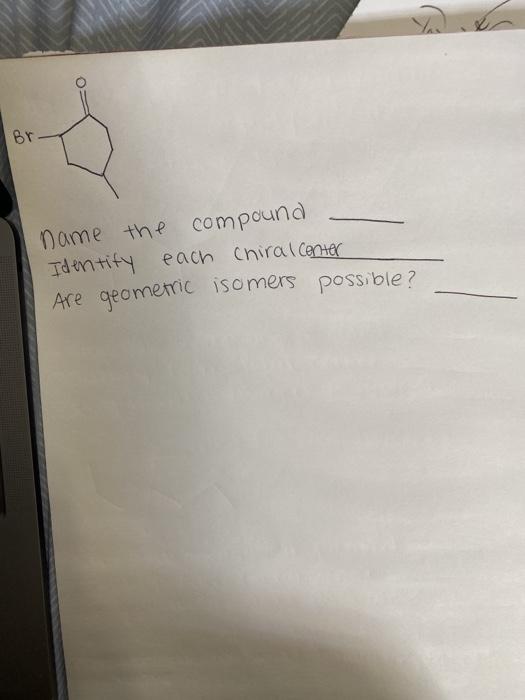 O
Br
Name the compound
Identify each chiral center
Are geometric isomers possible?